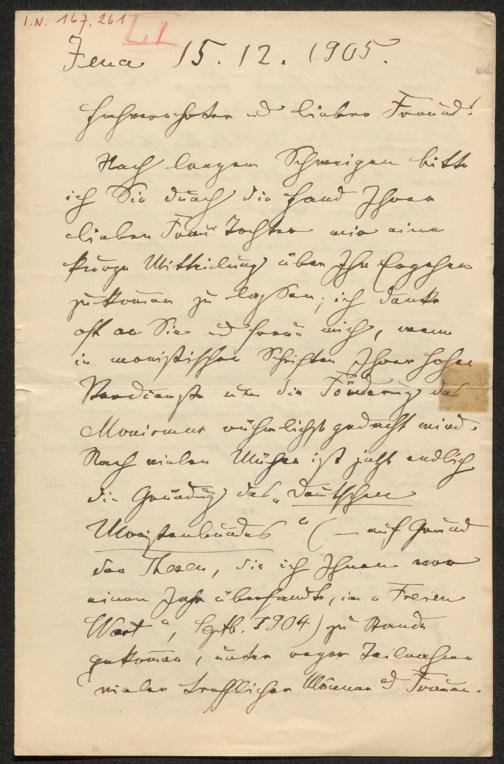 I.N. 167.261
Jena 15.12.1905.
Hochverehrter u. lieber Freund!
Nach langem Schweigen bitte
ich Sie durch die Hand Ihrer
lieben Frau Tochter mir eine
kurze Mitteilung über Ihr Ergehen
zukommen zu lassen; ich denke
oft an Sie und freue mich, wenn
in monistischen Schriften Ihrer hohen
Verdienste um die Förderung des
Monismus rühmlichst gedacht wird.
Nach vielen Mühen ist jetzt endlich
die Gründung des „Deutschen
Monistenbundes" (— auf Grund
der Thesen, die ich Ihnen vor
einem Jahr übersandte, im „Freien
Wort", Septb. 1904) zu Stande
gekommen, unter reger Teilnahme
vieler trefflicher Männer u. Frauen.